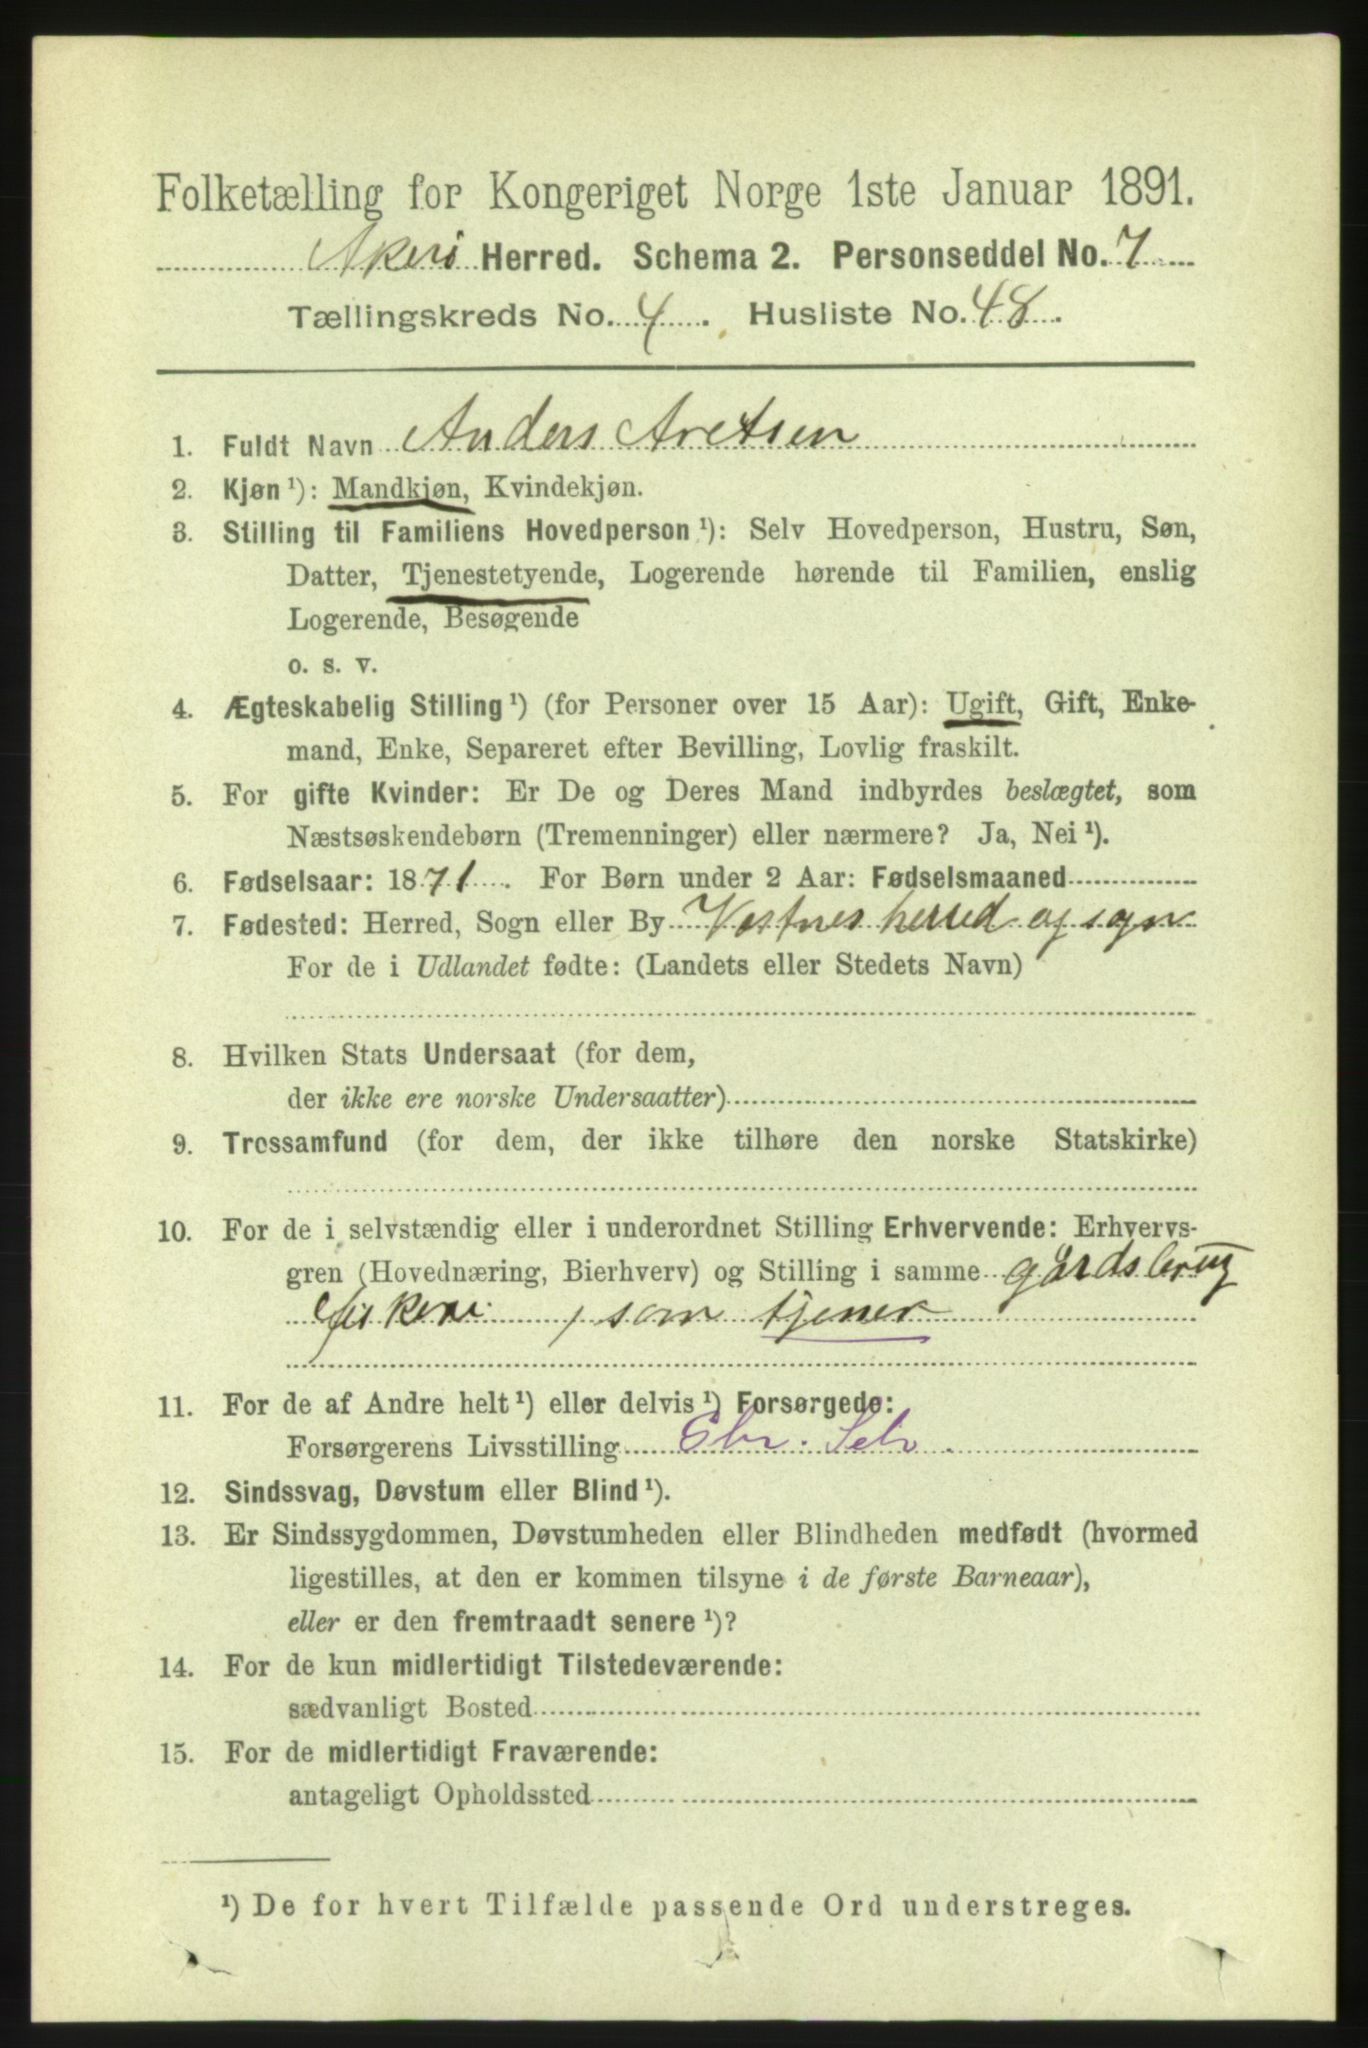 Folketælling for Kongeriget Norge 1ste Januar 1891.
Akerø Herred. Schema 2. Personseddel No. 7
Tællingskreds No. 4. Husliste No. 48.
1. Fuldt Navn Anders Aretsen
2. Kjøn ¹): Mandkjøn, Kvindekjøn.
3. Stilling til Familiens Hovedperson ¹): Selv Hovedperson, Hustru, Søn,
Datter, Tjenestetyende, Logerende hørende til Familien, enslig
Logerende, Besøgende
o. s. v.
4. Ægteskabelig Stilling ¹) (for Personer over 15 Aar): Ugift, Gift, Enke-
mand, Enke, Separeret efter Bevilling, Lovlig fraskilt.
5. For gifte Kvinder: Er De og Deres Mand indbyrdes beslægtet, som
Næstsøskendebørn (Tremenninger) eller nærmere? Ja, Nei ¹).
6. Fødselsaar: 1871. For Børn under 2 Aar: Fødselsmaaned
7. Fødested: Herred, Sogn eller By Vestnes herred og sogn
For de i Udlandet fødte: (Landets eller Stedets Navn)
8. Hvilken Stats Undersaat (for dem,
der ikke ere norske Undersaatter)
9. Trossamfund (for dem, der ikke tilhøre den norske Statskirke)
10. For de i selvstændig eller i underordnet Stilling Erhvervende: Erhvervs-
gren (Hovednæring, Bierhverv) og Stilling i samme gårdsbrug
fiskeri , som tjener
11. For de af Andre helt ¹) eller delvis ¹) Forsørgede:
Forsørgerens Livsstilling Ebr. Selv.
12. Sindssvag, Døvstum eller Blind ¹).
13. Er Sindssygdommen, Døvstumheden eller Blindheden medfødt (hvormed
ligestilles, at den er kommen tilsyne i de første Barneaar),
eller er den fremtraadt senere ¹)?
14. For de kun midlertidigt Tilstedeværende:
sædvanligt Bosted
15. For de midlertidigt Fraværende:
antageligt Opholdssted
¹) De for hvert Tilfælde passende Ord understreges.